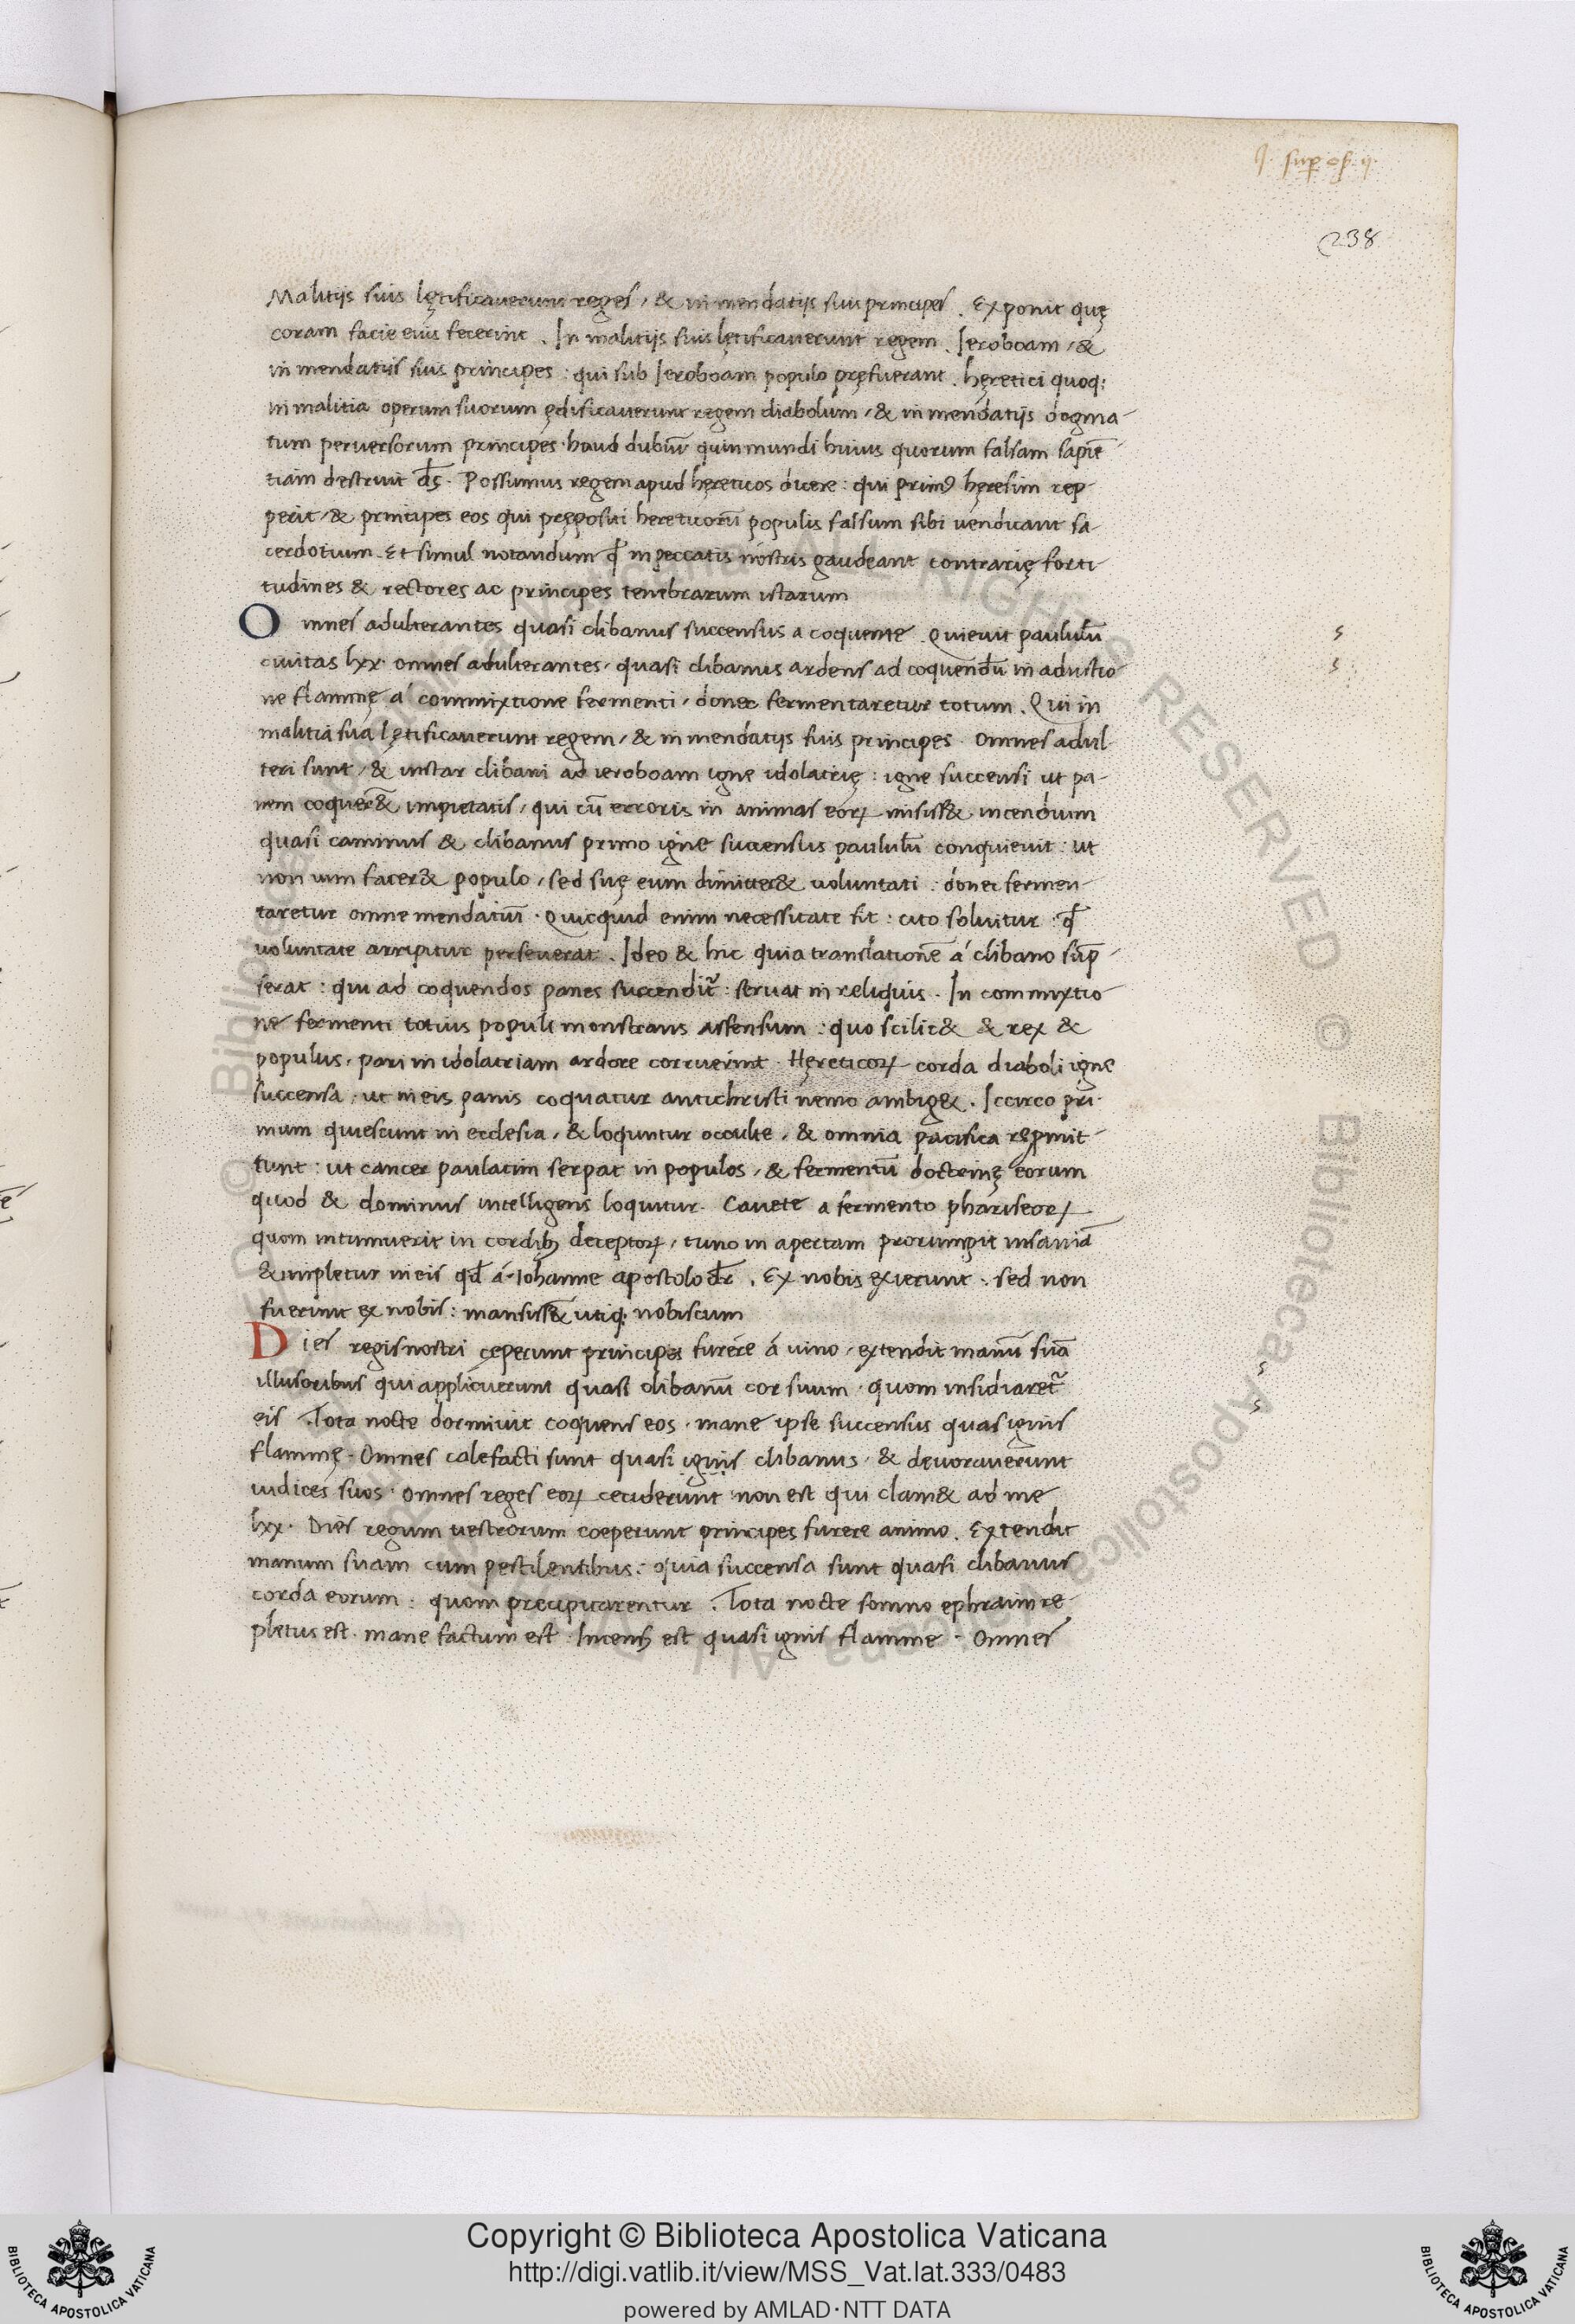 238
Malitijs suis lętificauerunt reges, & in mendatijs suis principes. Exponit quę
coram facie eius fecerint. In malitijs suis lętificauerunt regem. Ieroboam, &
in mendatiis suis principes: qui sub Ieroboam populo pręfuerant. hęretici quoq;
in malitia operum suorum ędificauerunt regem diabolum, & in mendatijs dogma-
tum peruersorum principes. haud dubiū quin mundi huius quorum falsam sapiē-
tiam destruit ds̄. Possumus regem apud hęreticos dicere: qui primꝰ hęresim rep-
perit, & principes eos qui prępositi hereticorū populis falsum sibi uendicant sa-
cerdotium. Et simul notandum ꝙ in peccatis nostris gaudeant contrarię forti
tudines & rectores ac principes tenebrarum istarum
Omnes adulterantes quasi clibanus succensus a coquente. Quieuit paululū
ciuitas lxx. omnes adulterantes, quasi clibanus ardens ad coquendū in adustio
ne flammę á commixtione fermenti, donec fermentaretur totum. Qui in
malitia sua lętificauerunt regem, & in mendatijs suis principes. Omnes adul-
teri sunt, & instar clibani ad ieroboam igne idolatrię: igne succensi ut pa-
nem coquer&̄ impietatis, qui cū erroris in animas eorꝝ misiss& incendium
quasi caminus & clibanus primo igne succensus paululū conquieuit: ut
non uim facer& populo, sed suę eum dimitter& voluntati: donec fermen-
taretur omne mendatiū. Quicquid enim necessitate fit: cito soluitur. ꝙ
uoluntate arripitur perseuerat. Ideo & hic quia translationē á clibano sūp-
serat: qui ad coquendos panes succendit̃: seruat in reliquis. In commixtio
ne fermenti totius populi monstrans assensum: quo scilic& & rex &
populus, pari in idolatriam ardore corruerint. Hęreticorꝝ corda diaboli igne
succensa, ut in eis panis coquatur antichristi nemo ambig&. Iccirco pri-
mum quiescunt in ecclesia, & loquntur occulte, & omnia pacifica repmit-
tunt: ut cancer paulatim serpat in populos, & fermentū doctrinę eorum
quod & dominus intelligens loquitur. Cauete a fermento phariseorꝝ
quom intumuerit in cordibꝫ deceptorꝝ, tunc in apertam prorumpit insaniā
& impletur in eis qd̄ á Iohanne apostolo dr̄. Ex nobis exierunt: sed non
fuerunt ex nobis: mansiss&̄ utiq; nobiscum
Dies regis nostri cęperunt principes furere á uino, extendit manū suā
illusoribus qui applicuerunt quasi clibanū cor suum. quom insidiaret̃
eis. Tota nocte dormiuit coquens eos. mane ipse succensus quasi ignis
flammę. Omnes calefacti sunt quasi ignis clibanus, & deuorauerunt
iudices suos. omnes reges eorꝝ ceciderunt non est qui clam& ad me
lxx. Dies regum uestrorum coeperunt principes furere animo. Extendit
manum suam cum pestilentibus: quia succensa sunt quasi clibanus
corda eorum: quom precipitarentur. Tota nocte somno ephraim re-
pletus est. mane factum est. Incensꝰ est quasi ignis flamme. Omnes
© Biblioteca Apostolica Vaticana ALL RIGHTS RESERVED
Copyright © Biblioteca Apostolica Vaticana
http://digi.vatlib.it/view/MSS_Vat.lat.333/0483
powered by AMLAD·NTT DATA
BIBLIOTECA APOSTOLICA VATICANA
BIBLIOTECA APOSTOLICA VATICANA